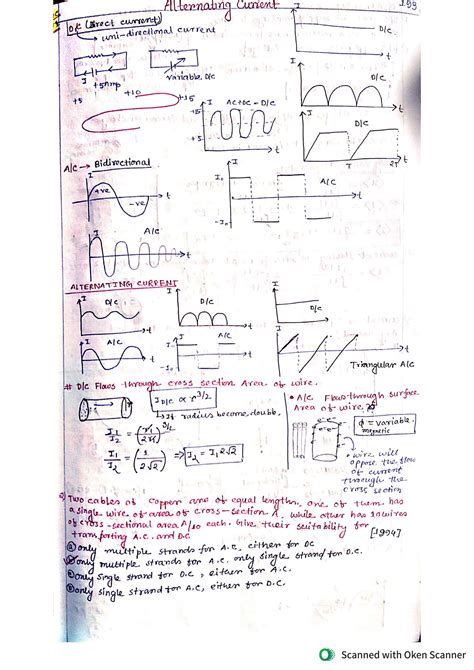 Alternating Current
199
D/C (Direct current)
→ uni-directional current
I
D/C
t
I
+5Amp
Variable D/C
I
D/C
t
+5
+10
+15
I
AC+DC = D/C
+5
t
I
D/C
T
2T
t
A/C → Bidirectional
I
+ve
-ve
t
I
A/C
t
-I₀
I
A/C
t
ALTERNATING CURRENT
I
D/C
t
I
D/C
t
I
D/C
I
A/C
t
I
A/C
t
-I₀
I
t
Triangular A/C
# D/C Flows through cross section Area of wire.
I D/C ∝ r^3/2
→ If radius become double
I₁/I₂ = (r₁/2r₁)^3/2
I₁/I₂ = (1/2√2) ⇒ I₂ = I₁2√2
• A/C Flows through surface
Area of wire.
e⁻
e⁻
ϕ = variable
magnetic
• wire will
oppose the flow
of current
through the
cross section
Q) Two cables of copper are of equal lengths, one of them has
a single wire of area of cross-section A, while other has 10 wires
of cross-sectional area A/10 each. Give their suitability for
transporting A.C. and D.C
[1994]
a) only multiple strands for A.C, either for DC
b) only multiple strands for A.C, only single strand for D.C.
c) only single strand for D.C, either for A.C
d) only single strand for A.C, either for D.C.
Scanned with Oken Scanner